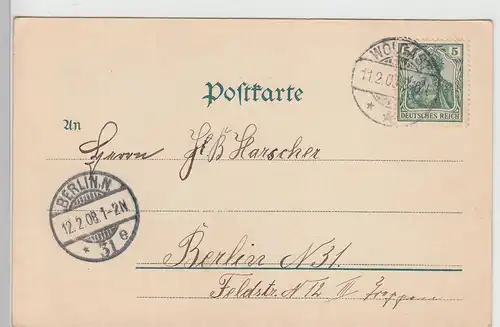 WOLGAST
11.2.08.
5
DEUTSCHES REICH
Postkarte
An
Herrn H. B. Harscher
BERLIN.N.
12.2.08.1-2N
* 31 e
Berlin N 31.
Feldstr. N 12 III Treppen